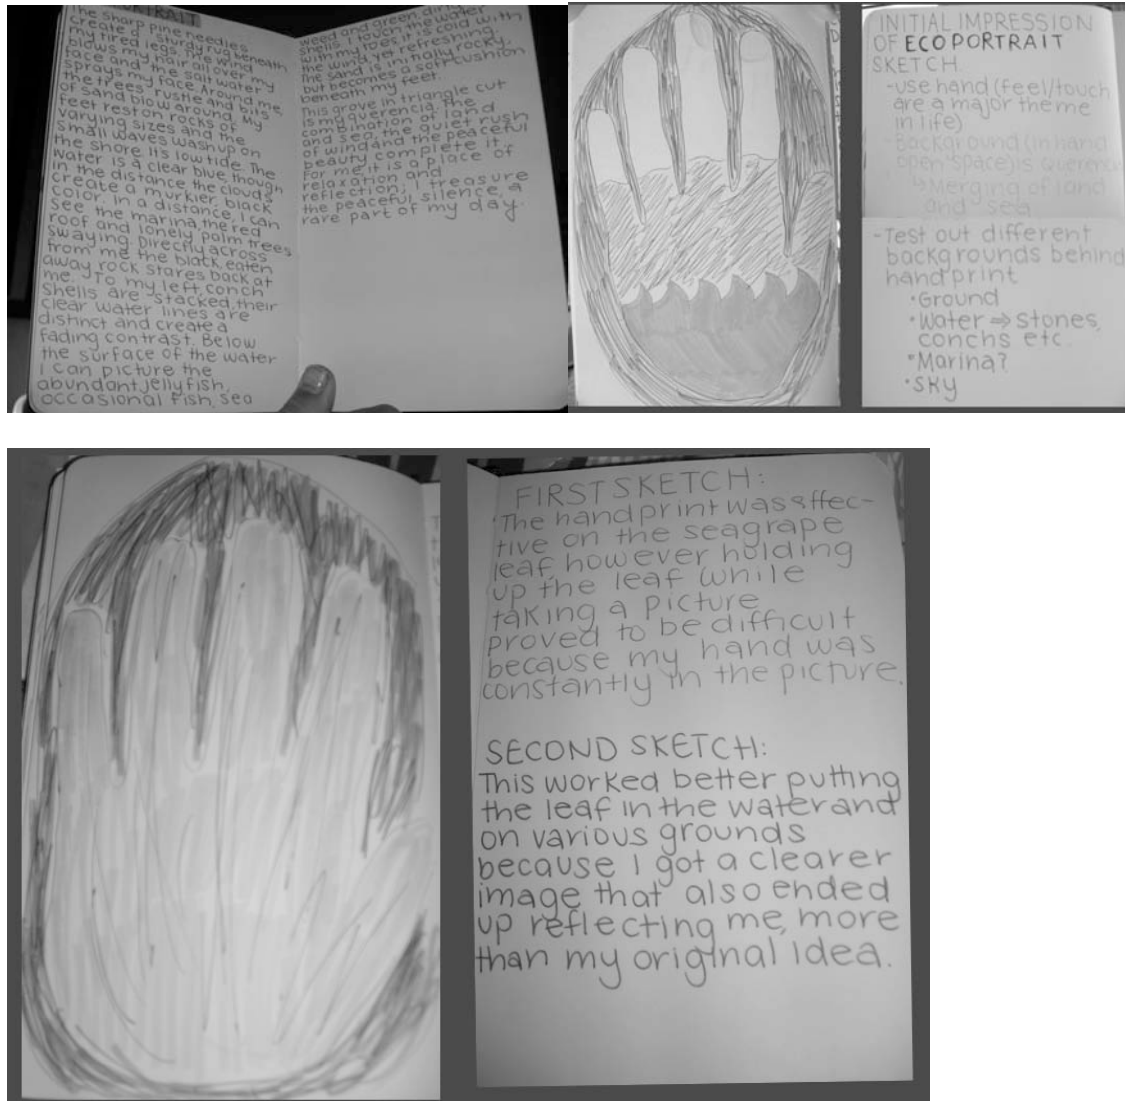 PORTRAIT
The sharp pine needles
create a sturdy rug beneath
my tired legs. The wind
blows my hair all over my
face and the salt water
sprays my face. Around me,
the trees rustle and bits
of sand blow around. My
feet rest on rocks of
varying sizes and the
small waves wash up on
the shore. It's low tide. The
water is a clear blue, though
in the distance the clouds
create a murkier, black
color. In a distance, I can
see the marina, the red
roof and lonely palm trees
swaying. Directly across
from me the black, eaten
away rock stares back at
me. To my left, conch
shells are stacked, their
clear water lines are
distinct and create a
fading contrast. Below
the surface of the water
I can picture the
abundant jellyfish,
occasional fish, sea
weed and green, dirty
shells. I touch the water
with my toes, it is cold with
the wind, yet refreshing.
The sand is initially rocky
but becomes a soft cushion
beneath my feet.
This grove in triangle cut
is my querencia. The
combination of land
and sea, the quiet rush
of wind and the peaceful
beauty complete it.
For me it is a place of
relaxation and
reflection. I treasure
the peaceful silence, a
rare part of my day.
INITIAL IMPRESSION
OF ECOPORTRAIT
SKETCH
-use hand (feel/touch
are a major theme
in life)
-Background (in hand
open space) is querencia
↳Merging of land
and sea
-Test out different
backgrounds behind
handprint
•Ground
•Water ⇒ stones,
conchs etc.
•Marina?
•Sky
FIRST SKETCH:
•The handprint was effec-
tive on the seagrape
leaf, however holding
up the leaf while
taking a picture
proved to be difficult
because my hand was
constantly in the picture.
SECOND SKETCH:
This worked better putting
the leaf in the water and
on various grounds
because I got a clearer
image that also ended
up reflecting me, more
than my original idea.